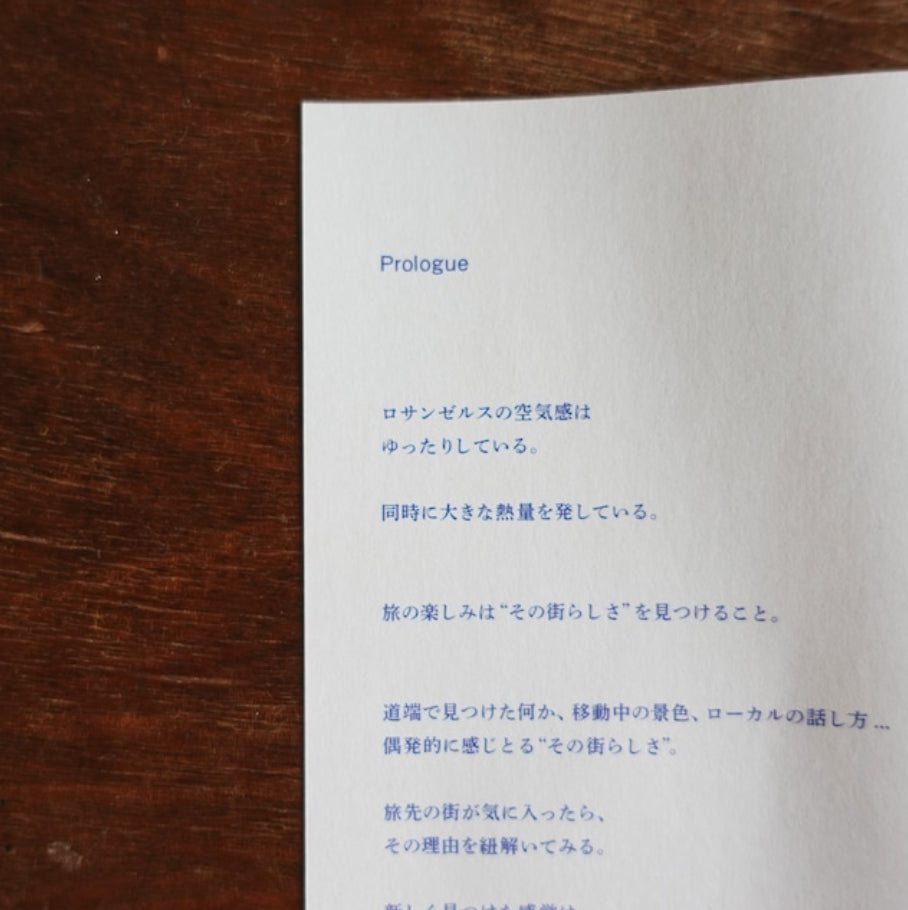 Prologue
ロサンゼルスの空気感は
ゆったりしている。
同時に大きな熱量を発している。
旅の楽しみは“その街らしさ”を見つけること。
道端で見つけた何か、移動中の景色、ローカルの話し方...
偶発的に感じとる“その街らしさ”。
旅先の街が気に入ったら、
その理由を紐解いてみる。